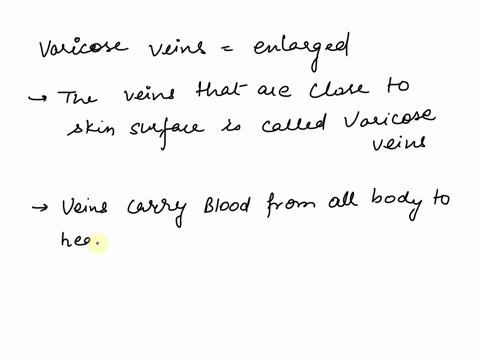 Varicose veins = enlarged
→ The veins that are close to
skin surface is called Varicose
veins
→ Veins carry Blood from all body to
hea